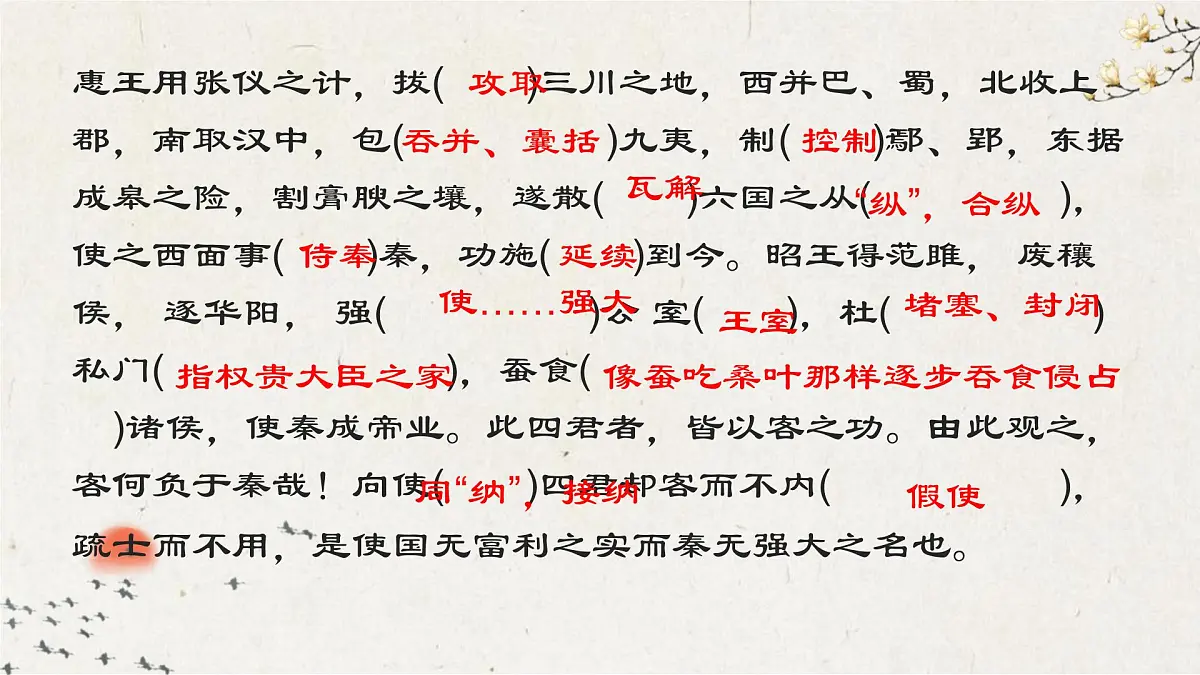 惠王用张仪之计，拔( 攻取)三川之地，西并巴、蜀，北收上
郡，南取汉中，包(吞并、囊括)九夷，制( 控制)鄢、郢，东据
成皋之险，割膏腴之壤，遂散( 瓦解)六国之从(“纵”，合纵 )，
使之西面事( 侍奉)秦，功施( 延续)到今。昭王得范雎， 废穰
侯， 逐华阳， 强( 使……强大)公 室( 王室)，杜( 堵塞、封闭)
私门( 指权贵大臣之家)，蚕食( 像蚕吃桑叶那样逐步吞食侵占
)诸侯，使秦成帝业。此四君者，皆以客之功。由此观之，
客何负于秦哉！向使(同“纳”，接纳)四君却客而不内( 假使 )，
疏士而不用，是使国无富利之实而秦无强大之名也。